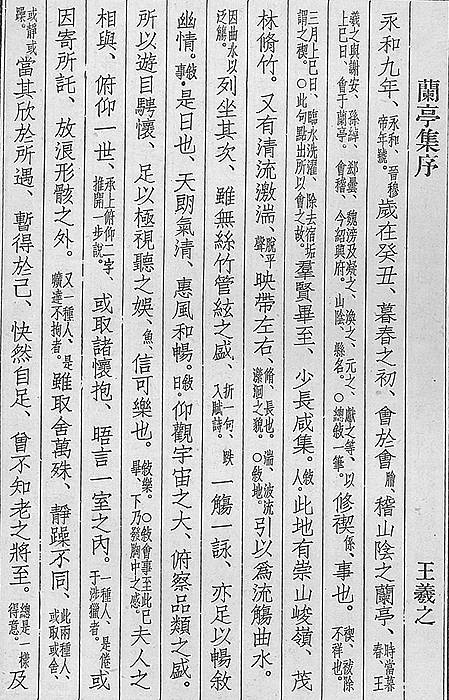 蘭亭集序 王羲之
永和九年、永和、晉穆帝年號。歲在癸丑、暮春之初、會於會膾稽山陰之蘭亭、時當暮春、王
羲之與謝安、孫綽、郗曇、魏滂及凝之、渙之、元之、獻之等、以上巳日、會于蘭亭。會稽、今紹興府。山陰、縣名。○總敘一筆。修禊係、事也。禊、祓除不祥也。
三月上巳日、臨水洗濯、除去宿垢、謂之禊。○此句點出所以會之故。羣賢畢至、少長咸集。敘人。此地有崇山峻嶺、茂
林脩竹。又有清流激湍、脫平聲。映帶左右、脩、長也。湍、波流瀠洄之貌。○敘地。引以爲流觴曲水。
因曲水以泛觴。列坐其次、雖無絲竹管絃之盛、折一句、跌入賦詩。一觴一詠、亦足以暢敘
幽情。敘事。是日也、天朗氣清、惠風和暢。敘日。仰觀宇宙之大、俯察品類之盛。
所以遊目騁懷、足以極視聽之娛、魚信可樂也。敘樂。○敘會事至此已畢、下乃發胸中之感。夫人之
相與、俯仰一世、承上俯仰二字推開一步說。或取諸懷抱、晤言一室之內。一種人、是倦于涉獵者。或
因寄所託、放浪形骸之外。又一種人、是曠達不拘者。雖取舍萬殊、靜躁不同、此兩種人、或取或舍、
或靜或躁。當其欣於所遇、暫得於己、快然自足、曾不知老之將至。總是一樣得意。及